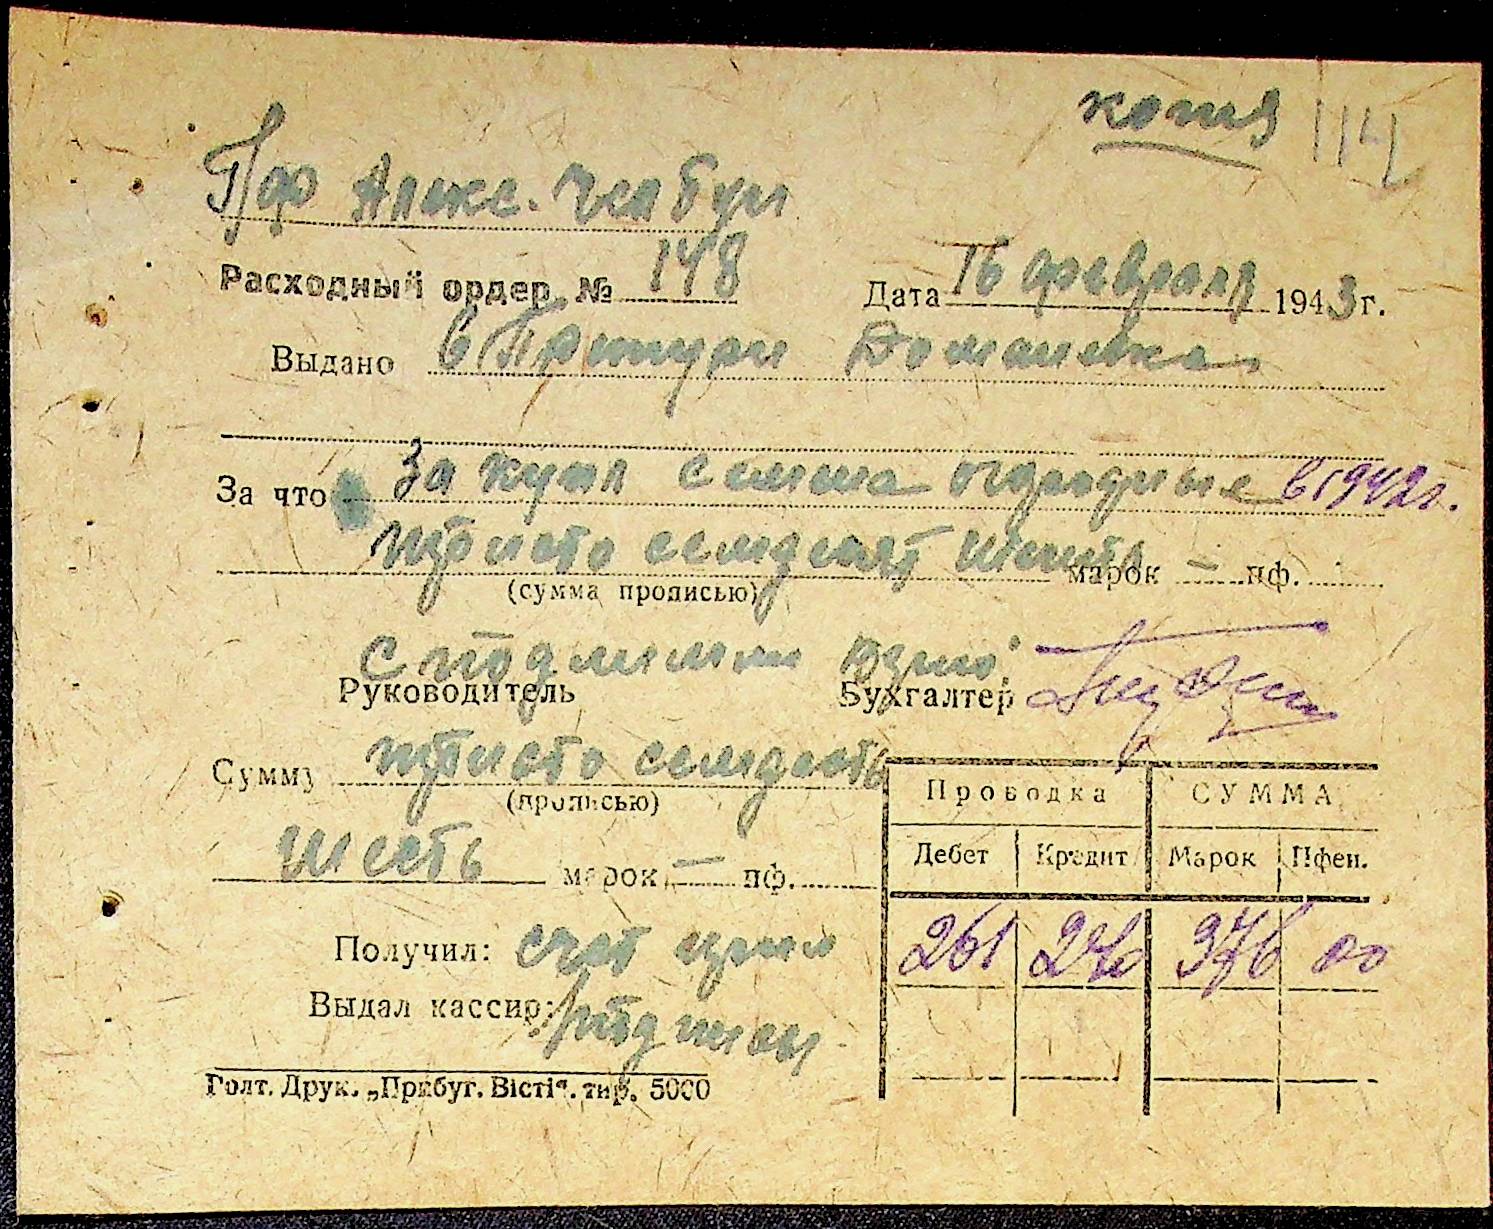 копия 114
Расходный ордер № 148 Дата 16 февраля 1943 г.
Выдано в Претури Доманевка
За что За семена огородные в 1942 г.
триста семдесят шесть марок — пф.
(сумма прописью)
с подлинным
Руководитель Бухгалтер
Сумму триста семдесять
(прописью)
шесть марок — пф.
Проводка СУММА
Дебет Кредит Марок Пфен.
261 240 376 00
Получил: счет
Выдал кассир:
Голт. Друк. „Прибуг. Вісті“. тир. 5000